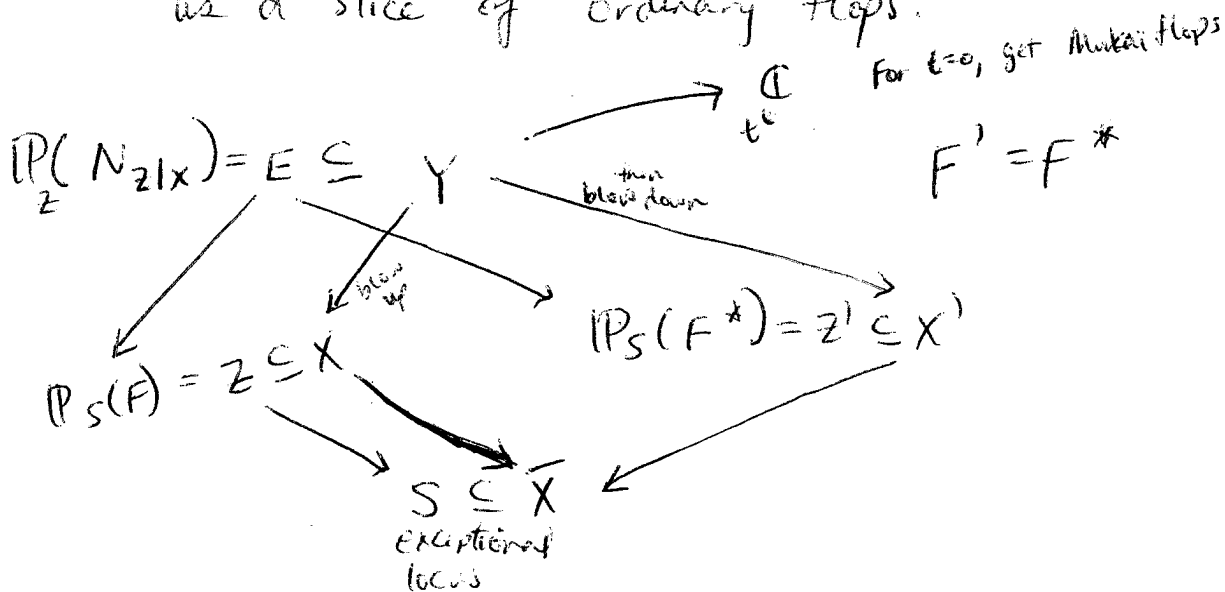 as a slice of ordinary flops.
For t=0, get Mukai flops
ℂ
t
F' = F*
ℙ_Z(N_{Z|X}) = E ⊆ Y
then
blow down
blow
up
ℙ_S(F) = Z ⊆ X
ℙ_S(F*) = Z' ⊆ X'
S ⊆ X̅
Exceptional
locus